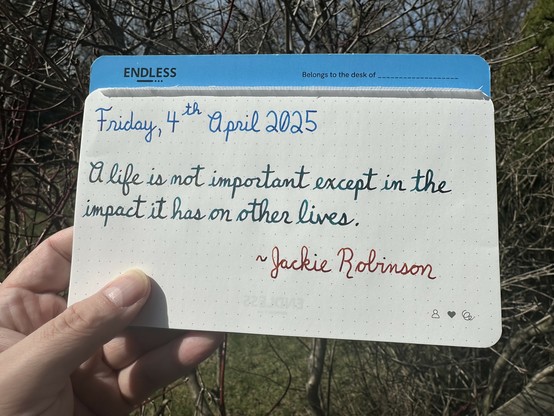 ENDLESS
Belongs to the desk of
Friday, 4th April 2025
A life is not important except in the
impact it has on other lives.
~Jackie Robinson
ENDLESS